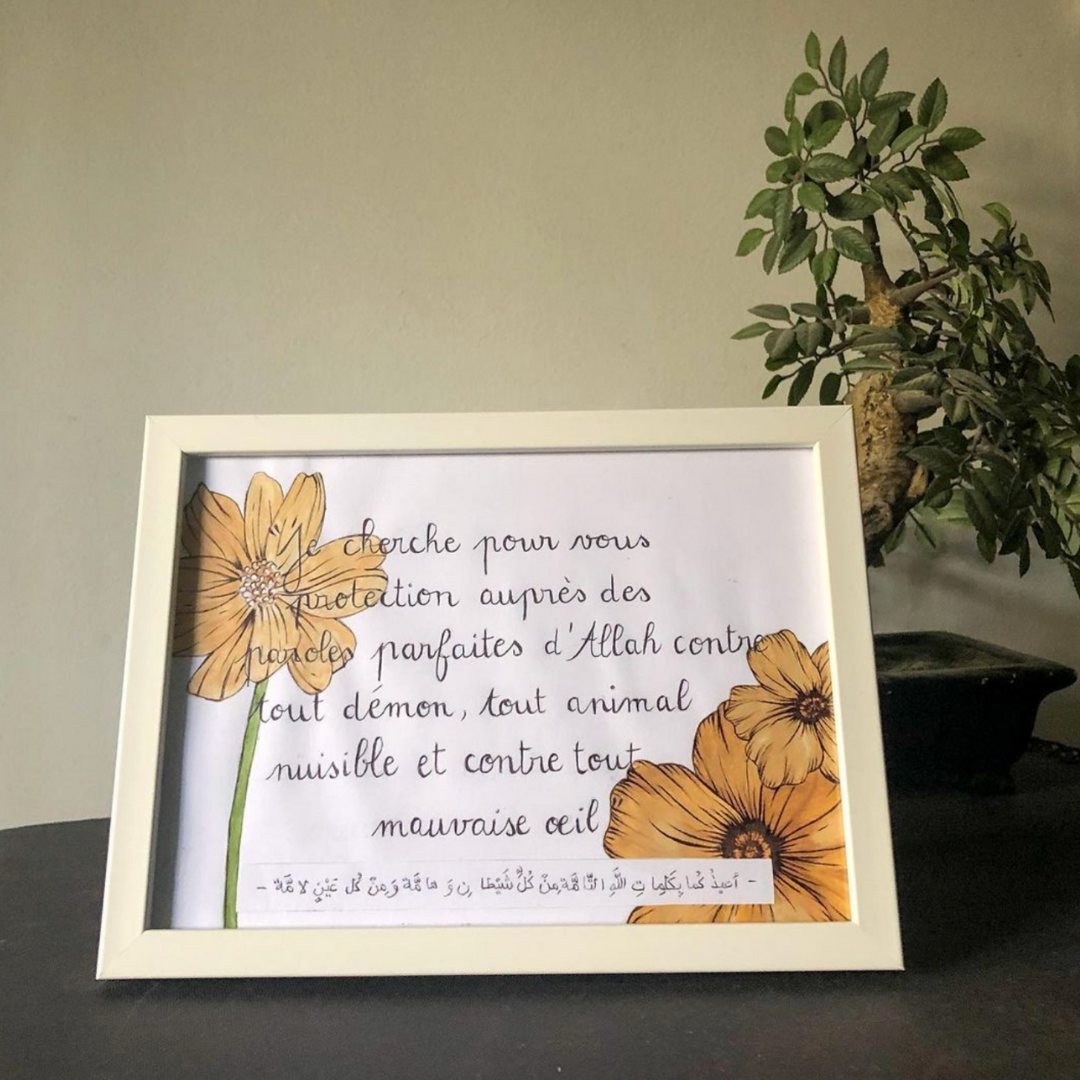 Je cherche pour vous
protection auprès des
paroles parfaites d'Allah contre
tout démon, tout animal
nuisible et contre tout
mauvaise œil
- أُعِيذُ كُمَا بِكَلِمَا تِ اللَّهِ التَّا مَّةِ مِنْ كُلِّ شَيْطَا نٍ وَ هَا مَّةٍ وَمِنْ كُلِ عَيْنٍ لا مَّةٍ -